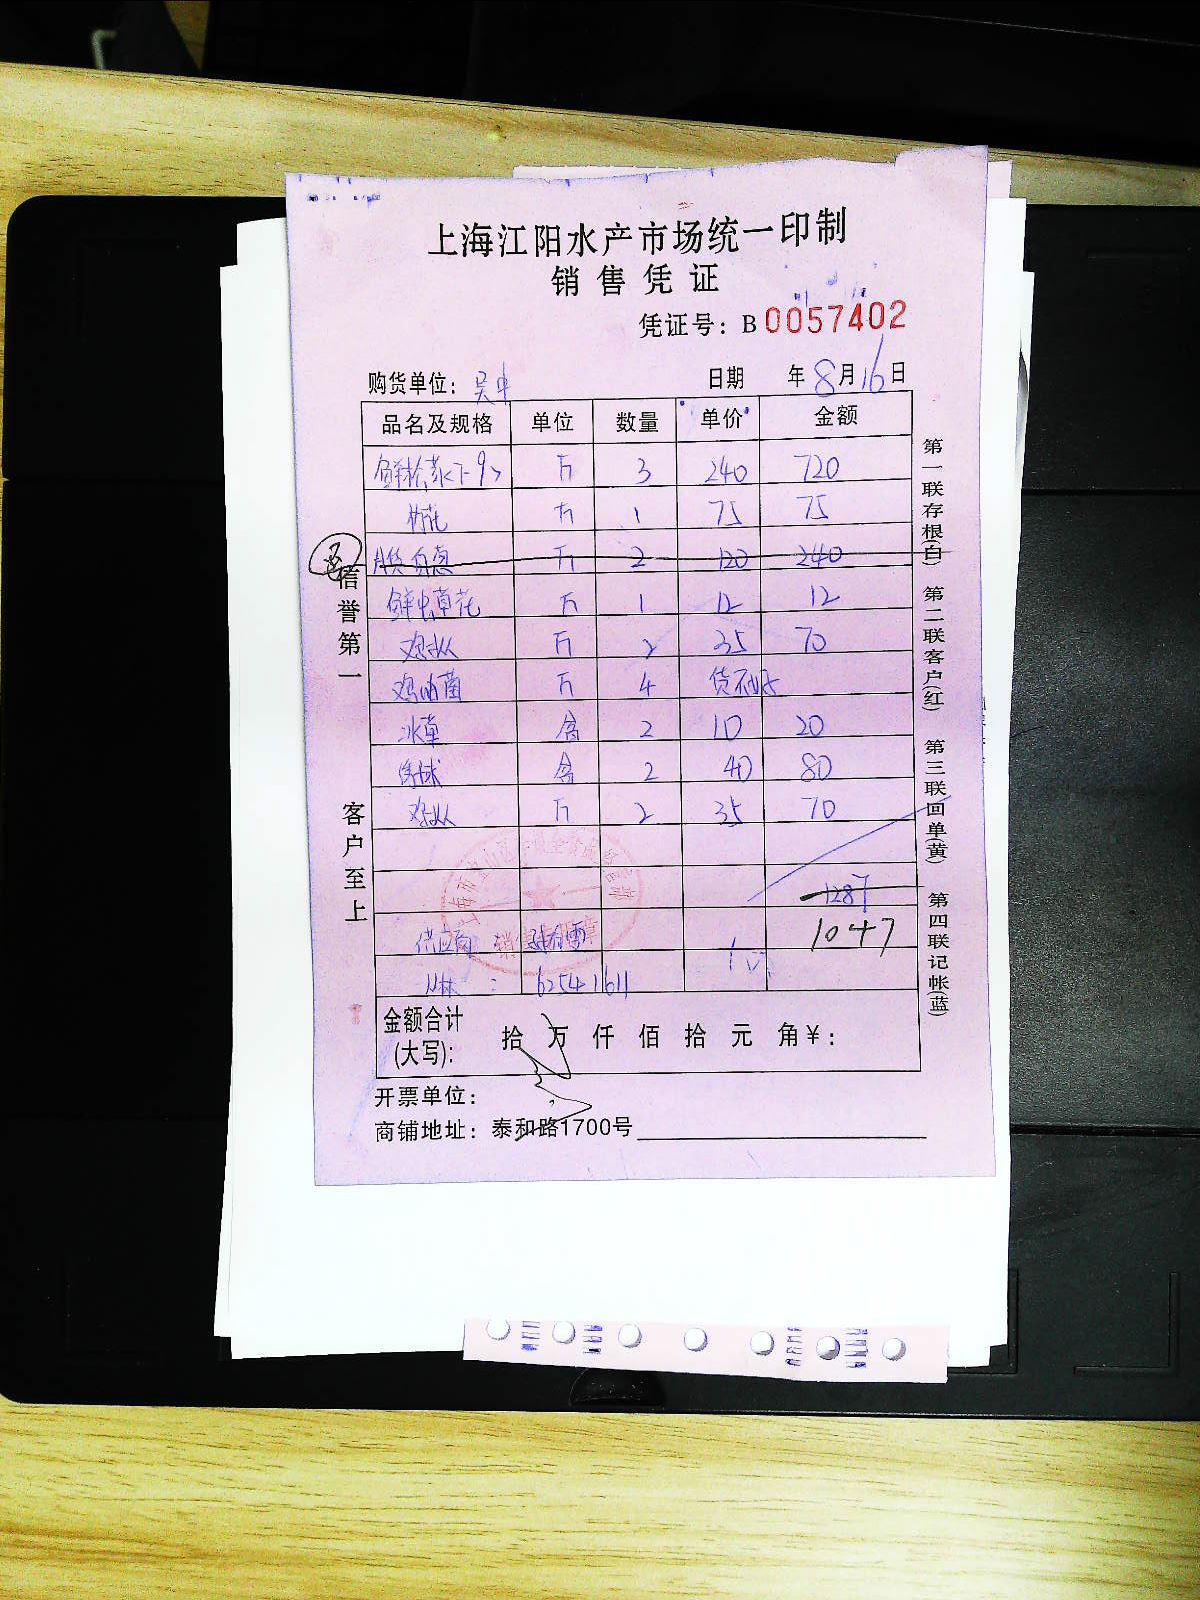 上海江阳水产市场统一印制
销售凭证
凭证号：B 0057402
购货单位：吴中
日期 年 8 月 16 日
品名及规格 单位 数量 单价 金额
鲜松茸<7-9> 斤 3 240 720
竹花 斤 1 75 75
斤 2 120 240
鲜虫草花 斤 1 12 12
鸡枞 斤 2 35 70
鸡油菌 斤 4 货不好
冰草 盒 2 10 20
盒 2 40 80
鸡枞 斤 2 35 70
1287
供应商 1047
： 62541611
金额合计(大写)： 拾 万 仟 佰 拾 元 角 ¥：
开票单位：
商铺地址：泰和路1700号
信誉第一
客户至上
第一联存根(白)
第二联客户(红)
第三联回单(黄)
第四联记帐(蓝)